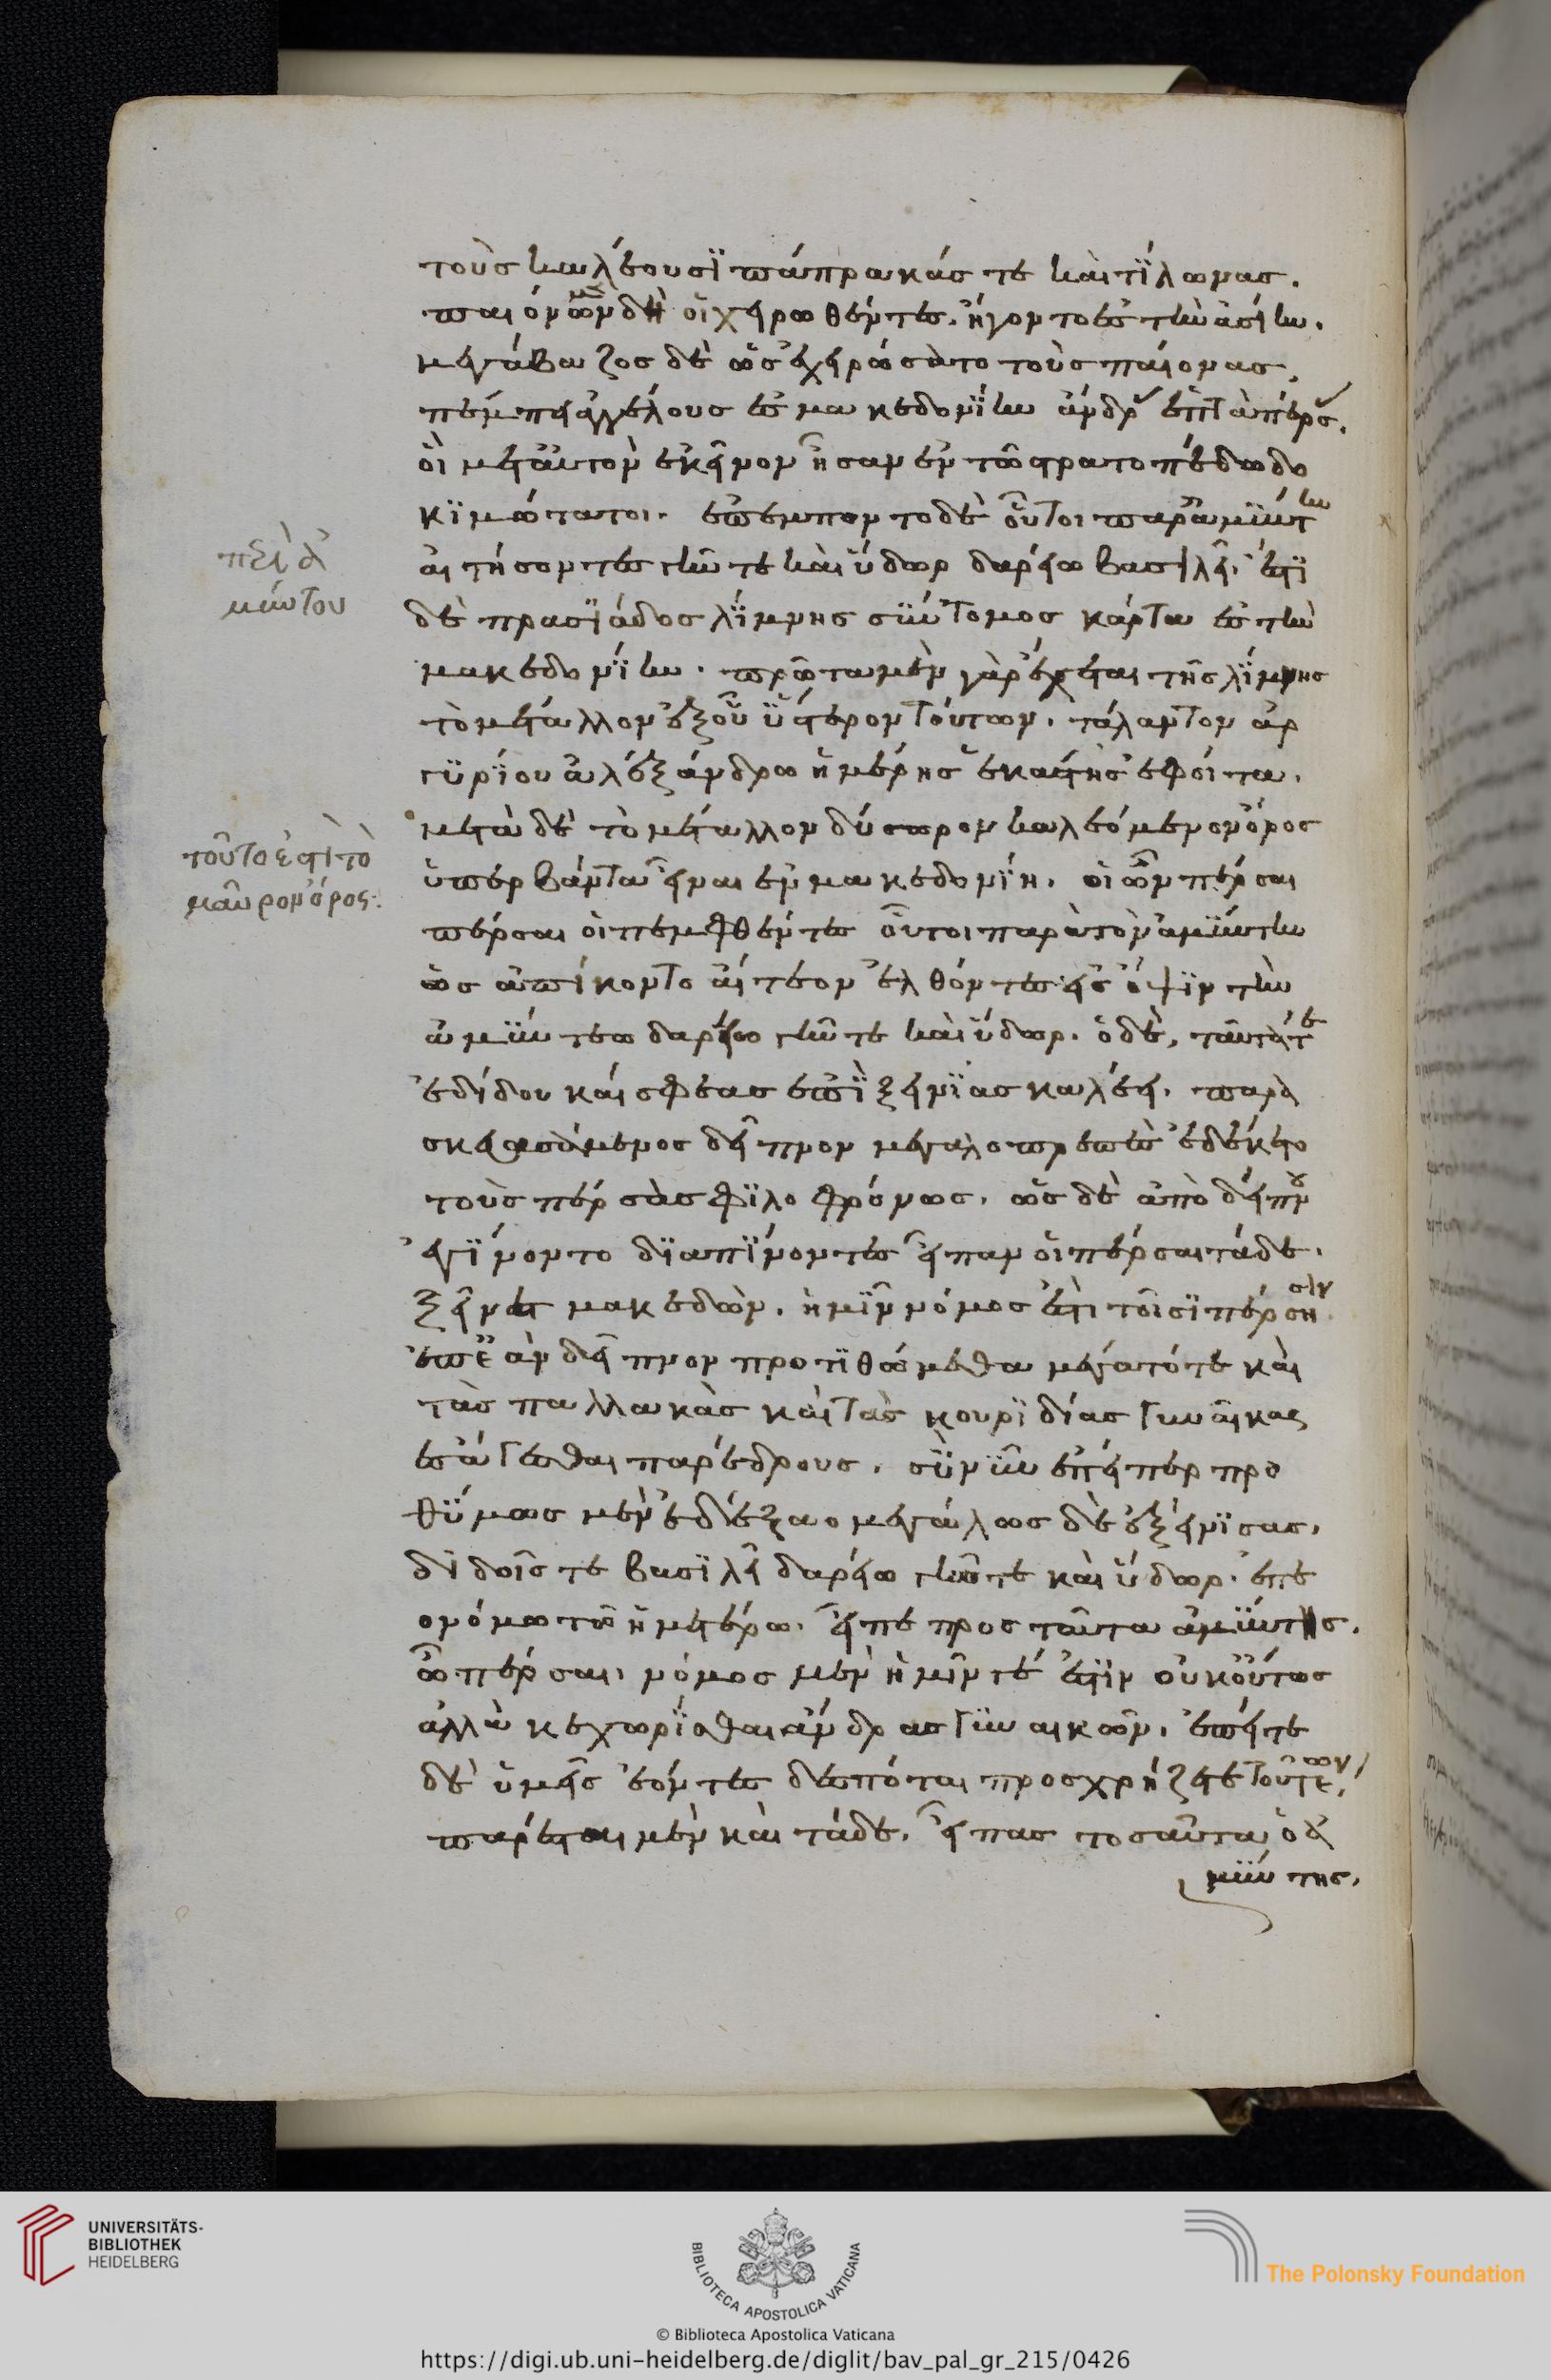 τοὺσ καλέουσϊ πάπρακάσ τε καὶ τΐλωνας.
παιόνων μὲν δὴ οἱ χειρωθέντεσ, ἤγοντο ἐσ τὴν ἀσίην.
μεγάβαζοσ δὲ ὡσ ἐχειρώσατο τοὺσ παίονασ,
πέμπει ἀγγέλουσ ἐσ μακεδονΐην ἄνδρ ἑπτὰ πέρσ.
οἳ μετ' αὐτὸν ἐκεῖνον ἦσαν ἐν τῶ στρατοπέδω δο
κϊμώτατοι. ἐπέμποντο δὲ οὗτοι παρ' ἀμΰντην
αἰτήσοντεσ γῆν τε καὶ ὕδωρ δαρείω βασιλεῖ. ἔστϊ
δὲ πρασϊάδοσ λΐμνησ σΰντομοσ κάρτα ἐσ τὴν
μακεδονΐην. πρῶτα μὲν γὰρ ἔχεται τῆσ λΐμνησ
τὸ μέταλλον ἐξ οὗ ΰστερον τούτων, τάλαντον ἀρ
γϋρΐου ἀλεξάνδρω ἡμέρησ ἑκάστησ ἐφοίτα.
μετὰ δὲ τὸ μέταλλον δύσωρον καλεόμενον ὄροσ
ὑπερβάντα εἶναι ἐν μακεδονΐη. οἱ ὦν πέρσαι
πέρσαι οἱ πεμφθέντεσ οὗτοι παρὰ τὸν ἀμΰντην
ὡσ ἀπίκοντο αἴτεον ἐλθόντεσ ἐσ ὄψϊν τὴν
ἀμΰντεω δαρείω γῆν τε καὶ ὕδωρ. ὁ δὲ, ταῦτά τε
ἐδίδου καί σφεασ ἐπϊ ξεινΐασ καλέει. παρα
σκευασάμενοσ δεῖπνον μεγαλοπρεπὲσ ἐδέκετο
τοὺσ πέρσασ φϊλοφρόνωσ. ὡσ δὲ ἀπὸ δείπνου
ἐγΐνοντο δϊαπΐνοντεσ εἶπαν οἱ πέρσαι τάδε.
ξεῖνε μακεδὼν. ἡμῖν νόμοσ ἐστὶ τοῖσϊ πέρσησιν
ἐπεὰν δεῖπνον προτϊθώμεθα μέγα τότε καὶ
τὰσ παλλακὰσ καὶ τὰσ κουρϊδίασ γυναῖκας
ἐσάγεσθαι παρέδρουσ. σΰ νυν ἐπείπερ προ
θΰμωσ μὲν ἐδέξαο μεγάλωσ δὲ ἐξείνϊσασ,
δϊδοῖσ τε βασϊλεῖ δαρείω γῆν τε καὶ ὕδωρ. ἕπε
ο νόμω τῶ ἡμετέρω. εἶπε προσ ταῦτα ἀμΰντησ.
ὦ πέρσαι, νόμοσ μὲν ἡμῖν γέ ἐστϊν οὐκ οὗτωσ
ἀλλὰ κεχωρΐσθαι ἄνδρασ γϋναικῶν. ἐπείτε
δὲ ὑμεῖσ ἐόντεσ δεσπόται προσχρήζετε τουτέων,
παρέσται μὲν καὶ τάδε. εἶπασ τοσαῦτα ὁ ἀ
μΰντησ,
περὶ ἀ
μύντου
τοῦτο ἐστὶ τὸ
μαῦρον ὄρος:
UNIVERSITÄTS-
BIBLIOTHEK
HEIDELBERG
BIBLIOTECA APOSTOLICA VATICANA
The Polonsky Foundation
© Biblioteca Apostolica Vaticana
https://digi.ub.uni-heidelberg.de/diglit/bav_pal_gr_215/0426